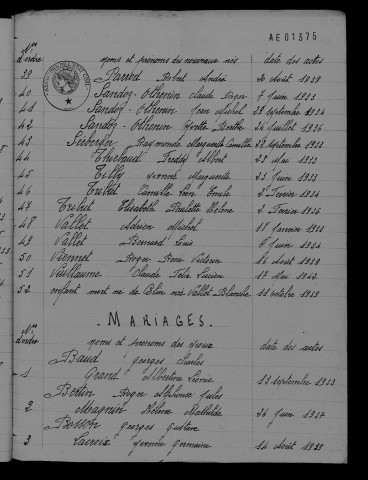 AE 01375
Nos d'ordre noms et prénoms des nouveaux nés date des actes
39 Parrod Robert André 20 Août 1929
40 Sandoz-Othenin Claude Roger 7 Juin 1923
41 Sandoz-Othenin Jean Michel 29 septembre 1924
42 Sandoz-Othenin Yvette Berthe 24 Juillet 1926
43 Seeberger Raymonde Marguerite Camille 22 septembre 1923
44 Thiébaud Freddy Albert 22 Mai 1923
45 Tilly Yvonne Marguerite 23 Juin 1923
46 Tribut Camille Léon Emile 2 Février 1924
47 Tribut Elisabeth Paulette Hélène 2 Février 1926
48 Vallet Adrien Michel 18 Janvier 1923
49 Vallet Bernard Louis 6 Juin 1924
50 Viennet Roger René Victorin 16 Août 1929
51 Vuillaume Claude Félix Lucien 17 Mai 1942
52 enfant mort né de Blin née Vallet Blanche 11 octobre 1929
MARIAGES.
Nos d'ordre noms et prénoms des époux date des actes
Baud Georges Charles
1 Grand Albertine Léonie 11 septembre 1923
Bertin Roger Alphonse Jules
2 Magnin Hélène Mathilde 26 Juin 1927
Bosson Georges Gustave
3 Lacroix Yvonne Germaine 14 Août 1929